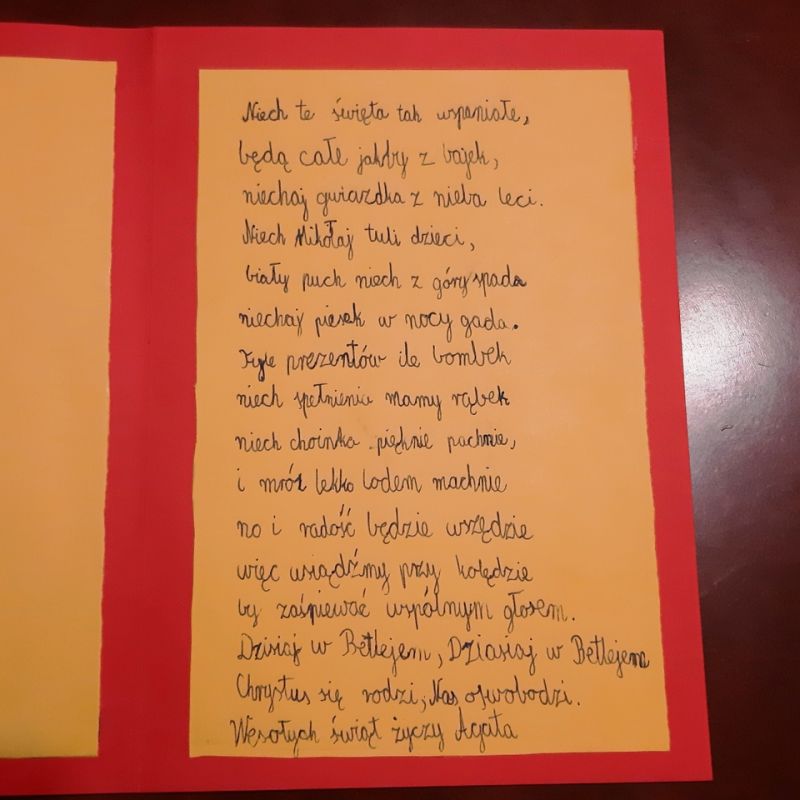 Niech te święta tak wspaniałe,
będą całe jakby z bajek,
niechaj gwiazdka z nieba leci.
Niech Mikołaj tuli dzieci,
biały puch niech z góry spada
niechaj piesek w nocy gada.
Tyle prezentów ile bombek
niech spełnienia mamy rąbek
niech choinka pięknie pachnie,
i mróz lekko lodem machnie
no i radość będzie wszędzie
więc usiądźmy przy kolędzie
by zaśpiewać wspólnym głosem.
Dzisiaj w Betlejem, Dziasiaj w Betlejem
Chrystus się rodzi, Nas oswobodzi.
Węsołych świąt życzy Agata